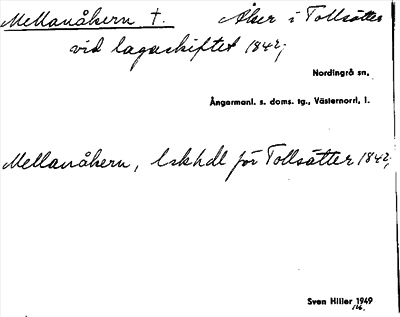 Mellanåkern †. Åker i Tollsätter
vid lagaskiftet 1842;
Nordingrå sn,
Ångermanl. s. doms. tg., Västernorrl. l.
Mellanåkern, lskhdl för Tollsätter 1842;
Sven Hiller 1949